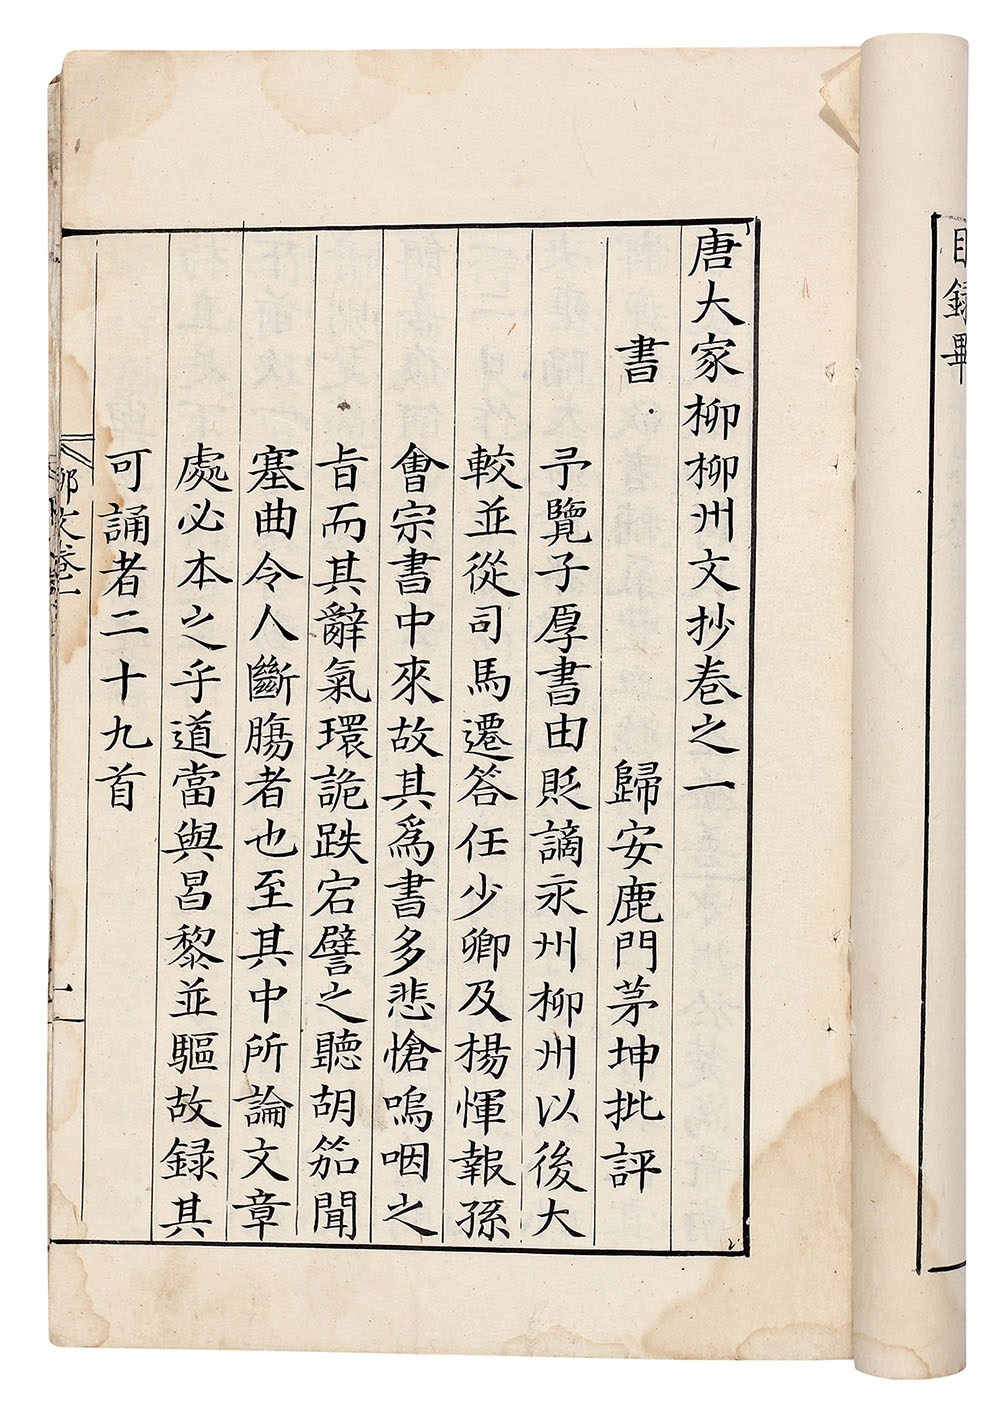 目錄畢
唐大家柳柳州文抄卷之一
歸安鹿門茅坤批評
書
予覽子厚書由貶謫永州柳州以後大
較並從司馬遷答任少卿及楊惲報孫
會宗書中來故其爲書多悲愴嗚咽之
旨而其辭氣環詭跌宕譬之聽胡笳聞
塞曲令人斷膓者也至其中所論文章
處必本之乎道當與昌黎並驅故録其
可誦者二十九首
柳文卷一
一